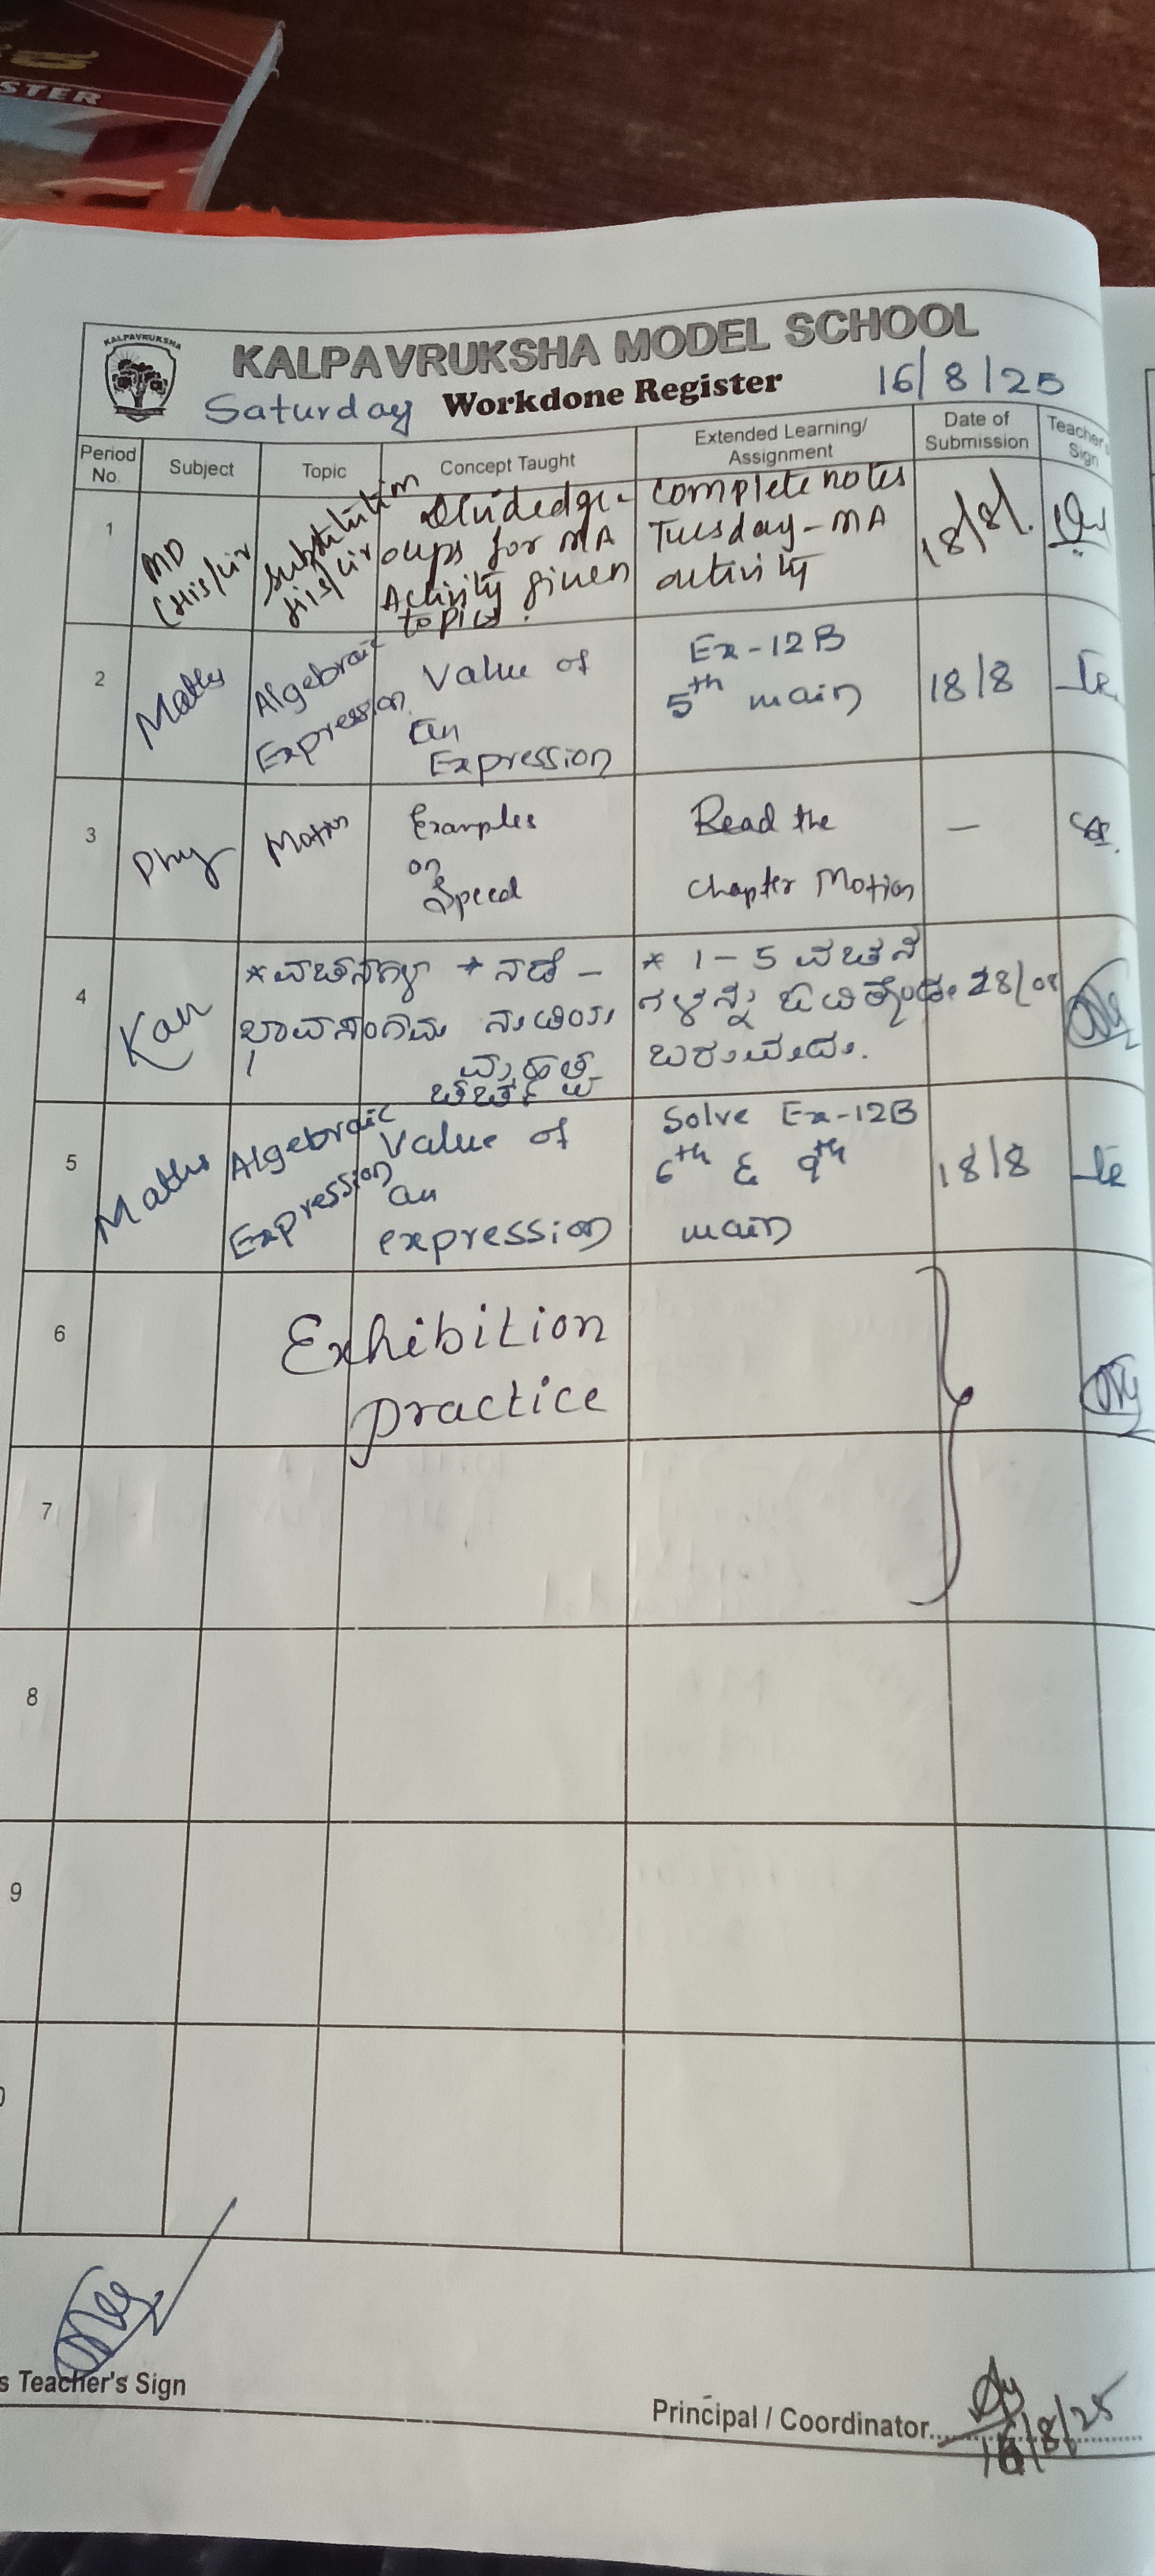 STER
KALPAVRUKSHA
KALPAVRUKSHA MODEL SCHOOL
Saturday Workdone Register 16/8/25
Period No. Subject Topic Concept Taught Extended Learning/ Assignment Date of Submission Teacher's Sign
1 MD (His/civ Substitution His/civ Divided gr-
oups for MA
Activity given
topics. complete notes
Tuesday - MA
activity 18/8/.
2 Maths Algebraic
Expression Value of
an
Expression Ex-12B
5th main 18/8
3 Phy Motion Examples
on
Speed Read the
chapter Motion —
4 Kan * ವಚನಗಳು
ಭಾವಸಂಗಮ * ನಡೆ -
ನುಡಿಯ
ಚರ್ಚೆ * 1-5 ವಚನ
ಗಳನ್ನು
ಬರುವುದು. 28/08
5 Maths Algebraic
Expression Value of
an
expression Solve Ex-12B
6th & 9th
main 18/8
6 Exhibition
practice
7
8
9
s Teacher's Sign
Principal / Coordinator
16/8/25